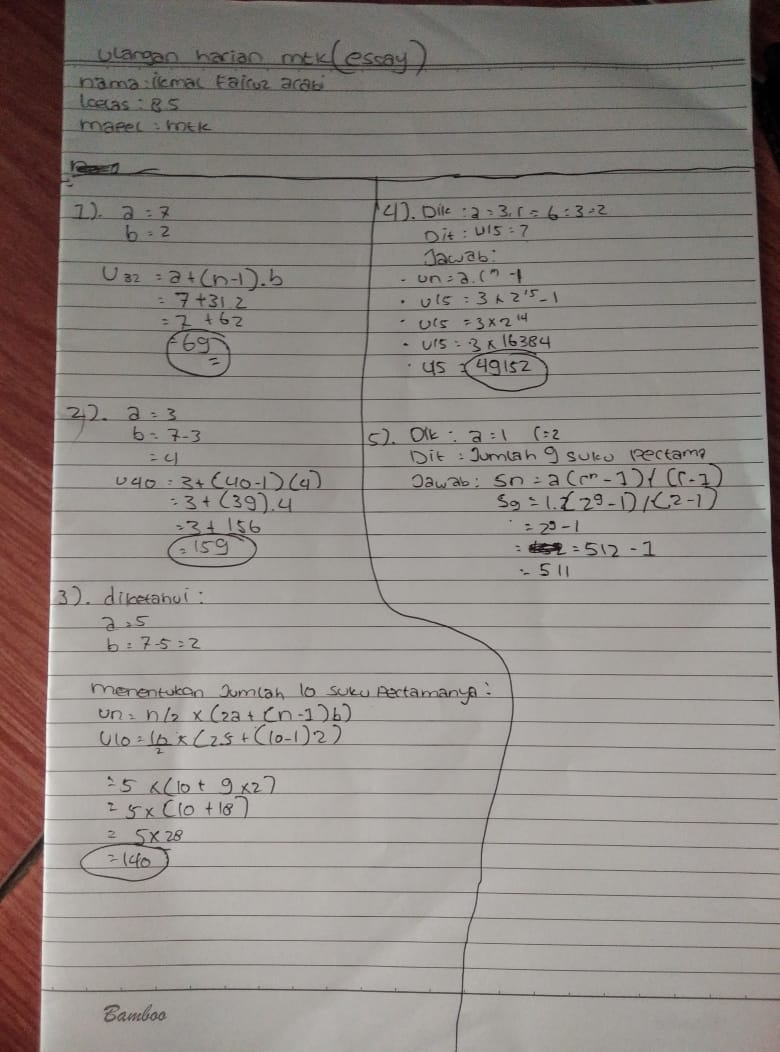 ulangan harian mtk (essay)
nama : ikmal Fairuz arabi
kelas : 85
mapel : mtk
1). a = 7
b = 2
U32 = a+(n-1).b
= 7+31.2
= 7 +62
= 69
2). a = 3
b = 7-3
= 4
U40 = 3+(40-1)(4)
= 3+(39).4
= 3+ 156
= 159
3). diketahui :
a = 5
b = 7-5 = 2
menentukan Jumlah 10 suku Pertamanya :
un = n/2 x (2a + (n-1)b)
U10 = 10/2 x (2.5 + (10-1)2)
= 5 x (10 + 9 x2)
= 5x (10 +18)
= 5x28
= 140
4). Dik : a = 3, r = 6 : 3 = 2
Dit : U15 = ?
Jawab :
· un = a.r^n -1
· U15 = 3 x 2^15-1
· U15 = 3x2^14
· U15 = 3 x 16384
· U5 = 49152
5). Dik : a = 1 r = 2
Dit : Jumlah 9 suku Pertama
Jawab : Sn = a (r^n - 1) / (r-1)
S9 = 1.(2^9 -1) / (2-1)
= 2^9 -1
= = 512 - 1
= 511
Bamboo